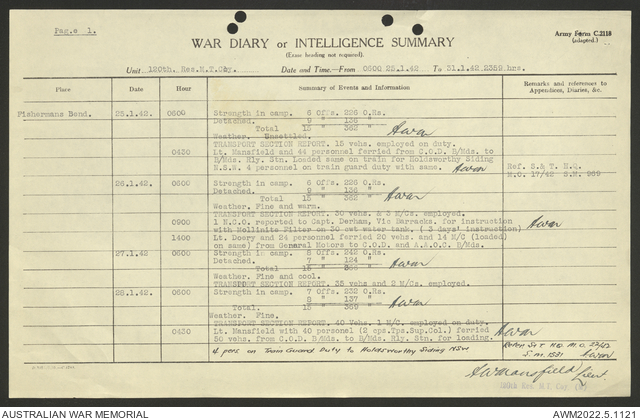 Page 1.
WAR DIARY or INTELLIGENCE SUMMARY
(Erase heading not required).
Army Form C.2118
(adapted.)
Unit 120th. Res.M.T.Coy. Date and Time—From 0600 25.1.42 To 31.1.42 2359 hrs.
Place Date Hour Summary of Events and Information Remarks and references to
Appendices, Diaries, &c.
Fishermans Bend. 25.1.42. 0600 Strength in camp. 6 Offs. 226 O.Rs.
Detached. 9 " 136 "
Total 15 " 362 "
Weather. Unsettled.
TRANSPORT SECTION REPORT. 15 vehs. employed on duty.
0430 Lt. Mansfield and 44 personnel ferried from C.O.D. B/Mds. to
B/Mds. Rly. Stn. Loaded same on train for Holdsworthy Siding
N.S.W. 4 personnel on train guard duty with same. Ref. S.& T. H.Q.
M.O. 17/42 S.M. 969
26.1.42 0600 Strength in camp. 6 Offs. 226 O.Rs.
Detached. 9 " 136 "
Total 15 " 362 "
Weather. Fine and warm.
TRANSPORT SECTION REPORT. 30 vehs. & 3 M/Cs. employed.
0900 1 N.C.O. reported to Capt. Derham, Vic Barracks. for instruction
with Mellinite Filter on 30 cwt water tank. ( 3 days' instruction)
1400 Lt. Doery and 24 personnel ferried 20 vehs. and 14 M/C (loaded
on same) from General Motors to C.O.D. and A.A.O.C. B/Mds.
27.1.42 0600 Strength in camp. 8 Offs. 242 O.Rs.
Detached. 7 " 124 "
Total 15 " 366 "
Weather. Fine and cool.
TRANSPORT SECTION REPORT. 35 vehs and 2 M/Cs. employed.
28.1.42 0600 Strength in camp. 7 Offs. 232 O.Rs.
8 " 137 "
Total. 15 " 369 "
Weather. Fine.
TRANSPORT SECTION REPORT. 40 Vehs. 1 M/C. employed on duty.
0430 Lt. Mansfield with 40 personel (2 cps.Tps.Sup.Col.) ferried
50 vehs. from C.O.D. B/Mds. to B/Mds. Rly. Stn. for loading.
4 pers on Train Guard Duty to Holdsworthy Siding NSW
Refer. S & T HQ. M.O. 22/42
S.M. 1531
Mansfield Lieut.
120th Res. M.T. Coy
AUSTRALIAN WAR MEMORIAL AWM2022.5.1121